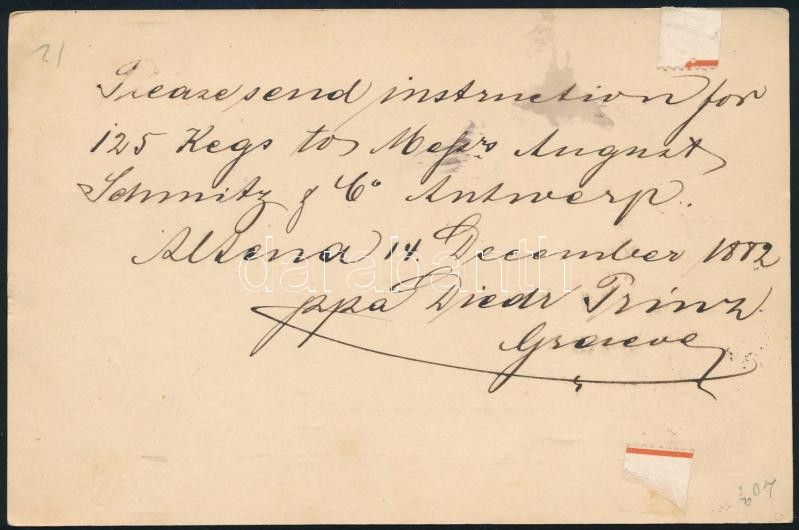 21
Please send instruction for
125 Kegs to Messrs August
Schmitz & Co Antwerp.
Altena 14. December 1882
darabanth
ppa Diedr Prinz
Graeve